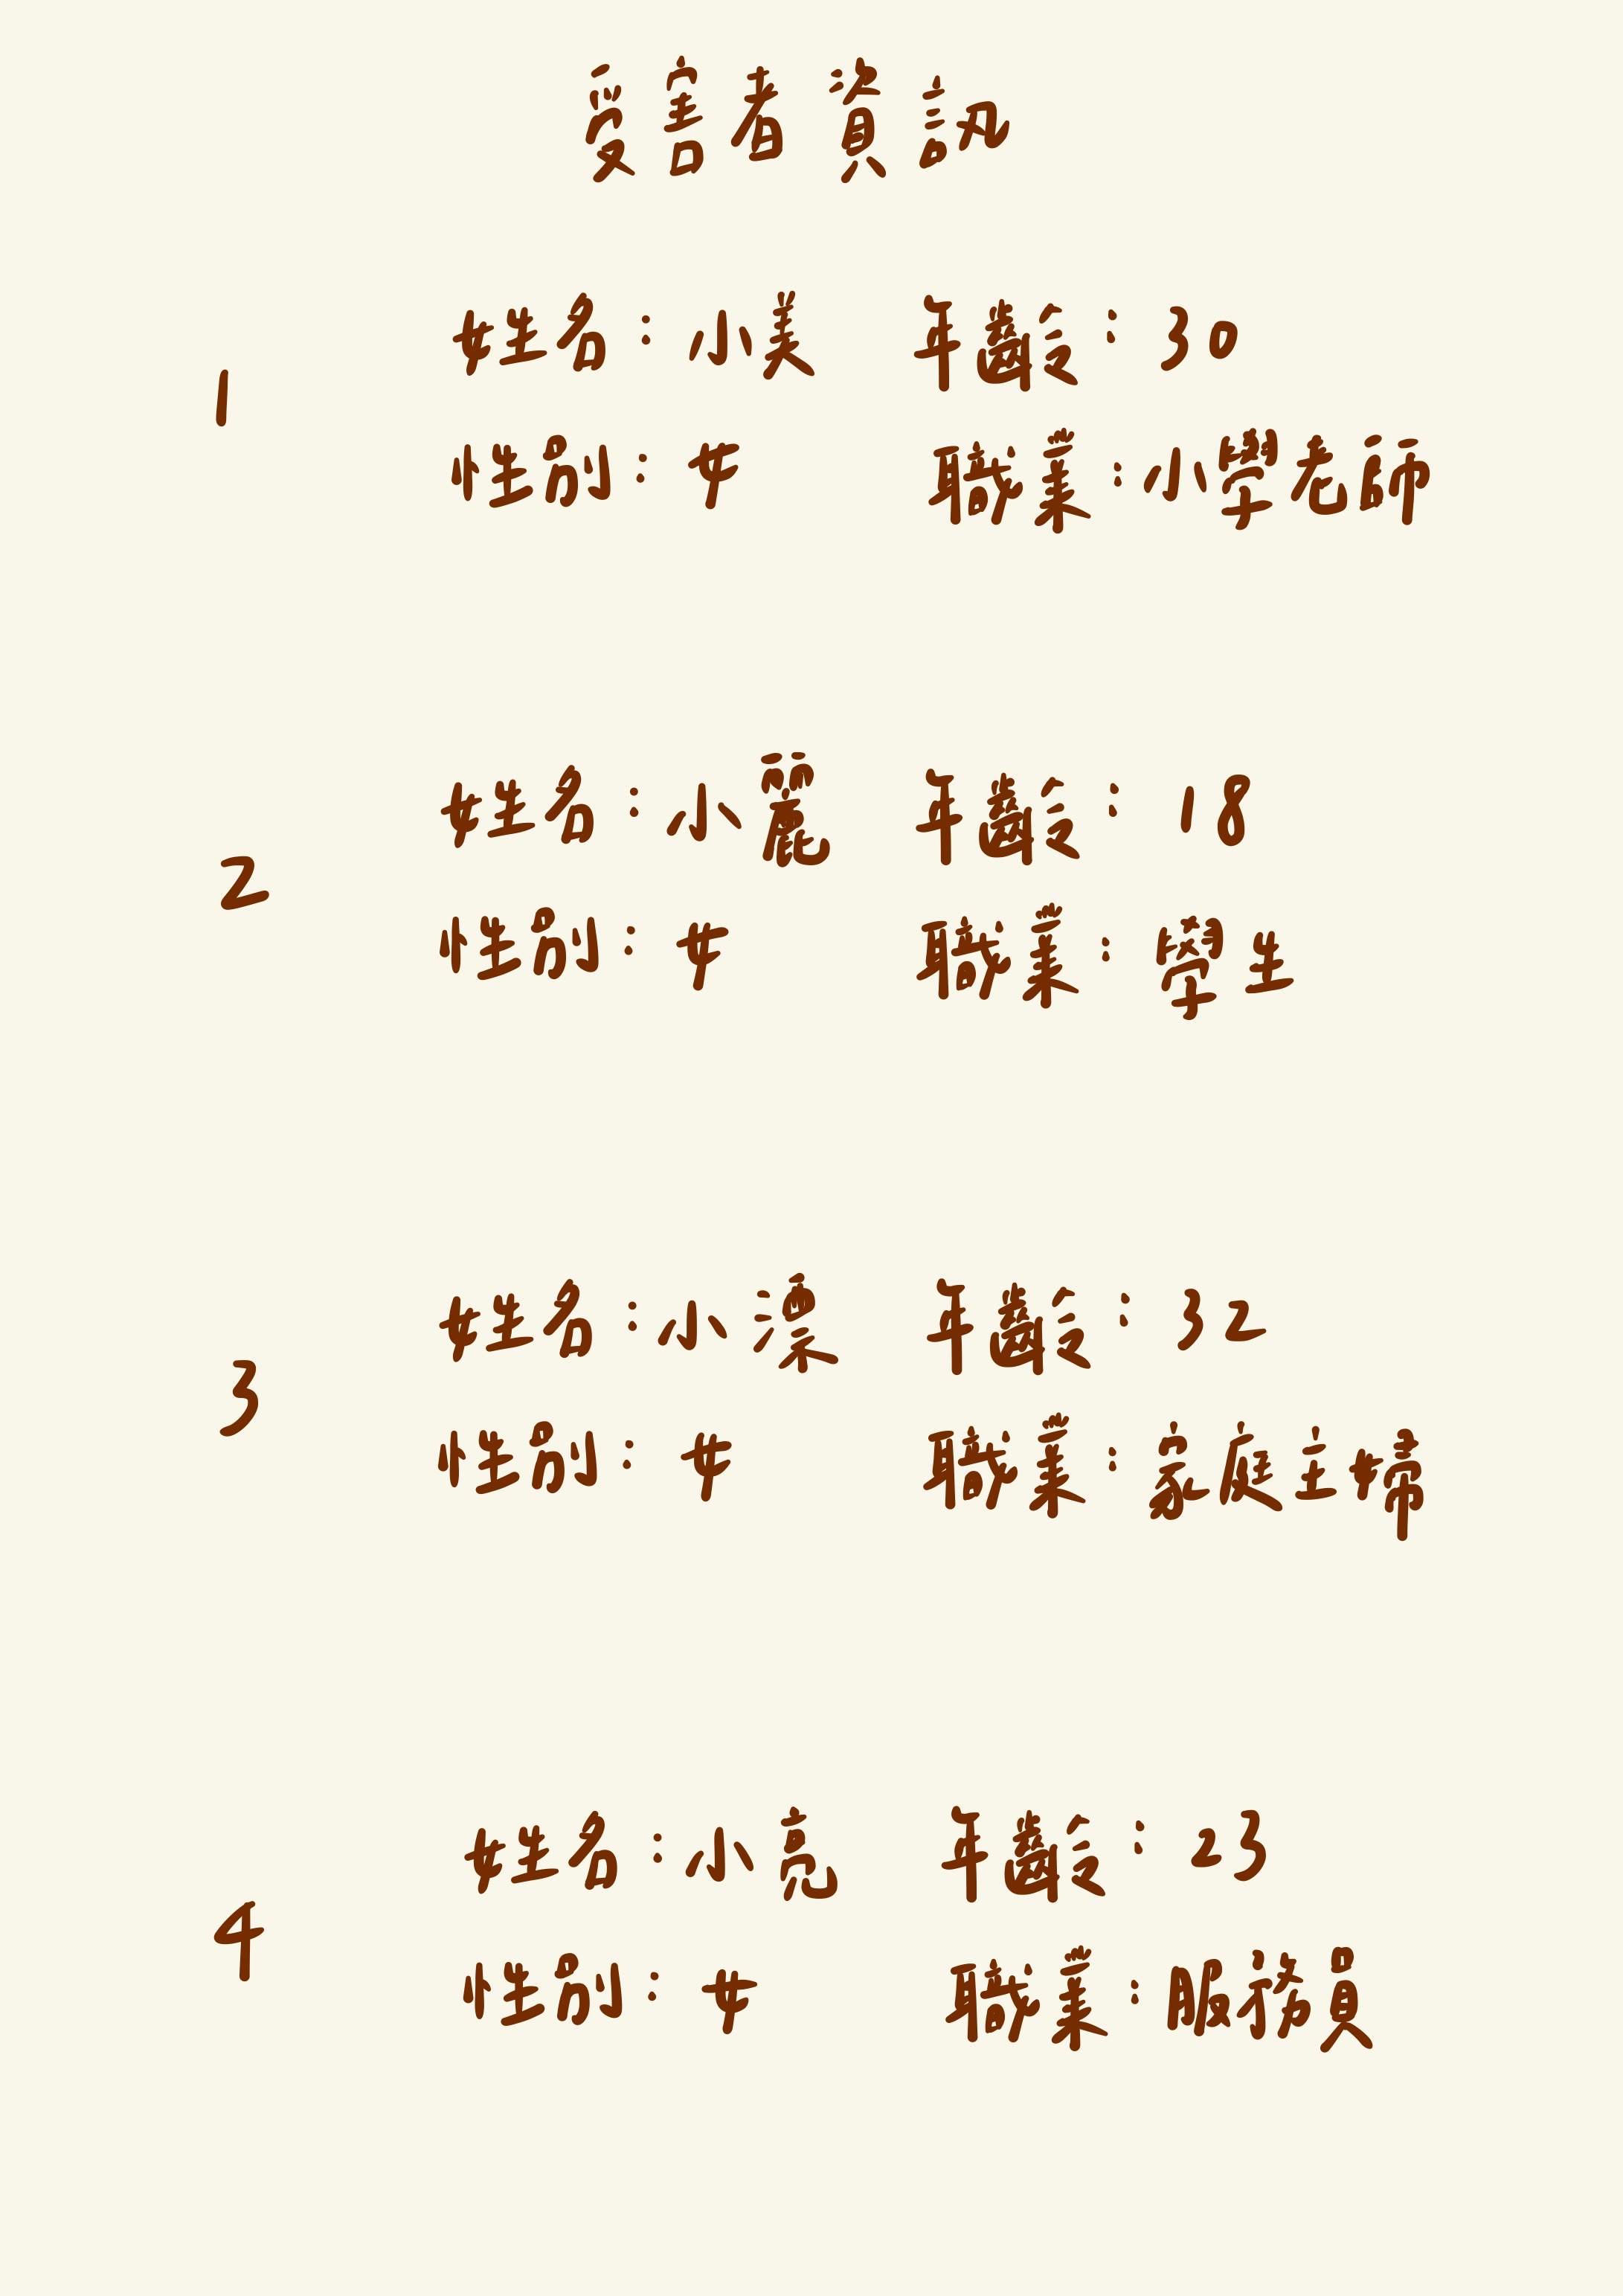 受害者資訊
1
姓名：小美 年齡：30
性別：女 職業：小學老師
2
姓名：小麗 年齡：18
性別：女 職業：學生
3
姓名：小漂 年齡：32
性別：女 職業：家庭主婦
4
姓名：小亮 年齡：23
性別：女 職業：服務員